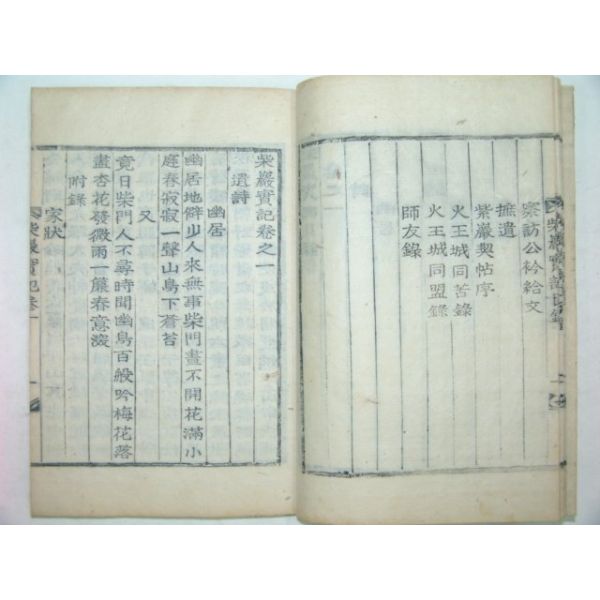 柴巖實記目錄
察訪公衿給文
摭遺
紫巖契帖序
火王城同苦錄
火王城同盟錄
師友錄
柴巖實記卷之一
遺詩
幽居
幽居地僻少人來無事柴門晝不開花滿小
庭春寂寂一聲山鳥下蒼苔
又
竟日柴門人不尋時聞幽鳥百般吟梅花落
盡杏花發微雨一簾春意深
附錄
家狀
柴巖實記卷一